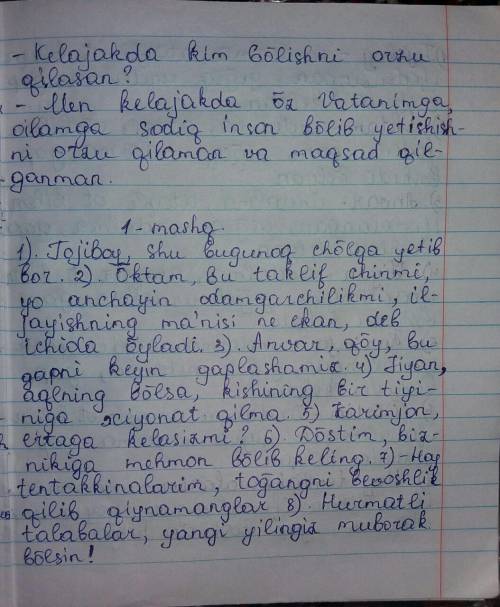 - Kelajakda kim bōlishni orzu
qilasan?
- Men kelajakda ōz Vatanimga,
oilamga sodiq inson bōlib yetishish-
ni orzu qilaman va maqsad qil-
ganman.
1-mashq.
1). Tojiboy, shu bugunoq chōlga yetib
bor. 2). Ōktam, bu taklif chinmi,
yo anchayin odamgarchilikmi, il-
jayishning ma'nisi ne ekan, deb
ichida ōyladi. 3). Anvar, qōy, bu
gapni keyin gaplashamiz. 4) Jiyan,
aqlning bōlsa, kishining bir tiyi-
niga xiyonat qilma. 5) Karimjon,
ertaga kelasizmi? 6). Dōstim, biz-
nikiga mehmon bōlib keling. 7) - Hay
tentakkinalarim, togangni bevoshlik
qilib qiynamanglar 8). Hurmatli
talabalar, yangi yilingiz muborak
bōlsin!